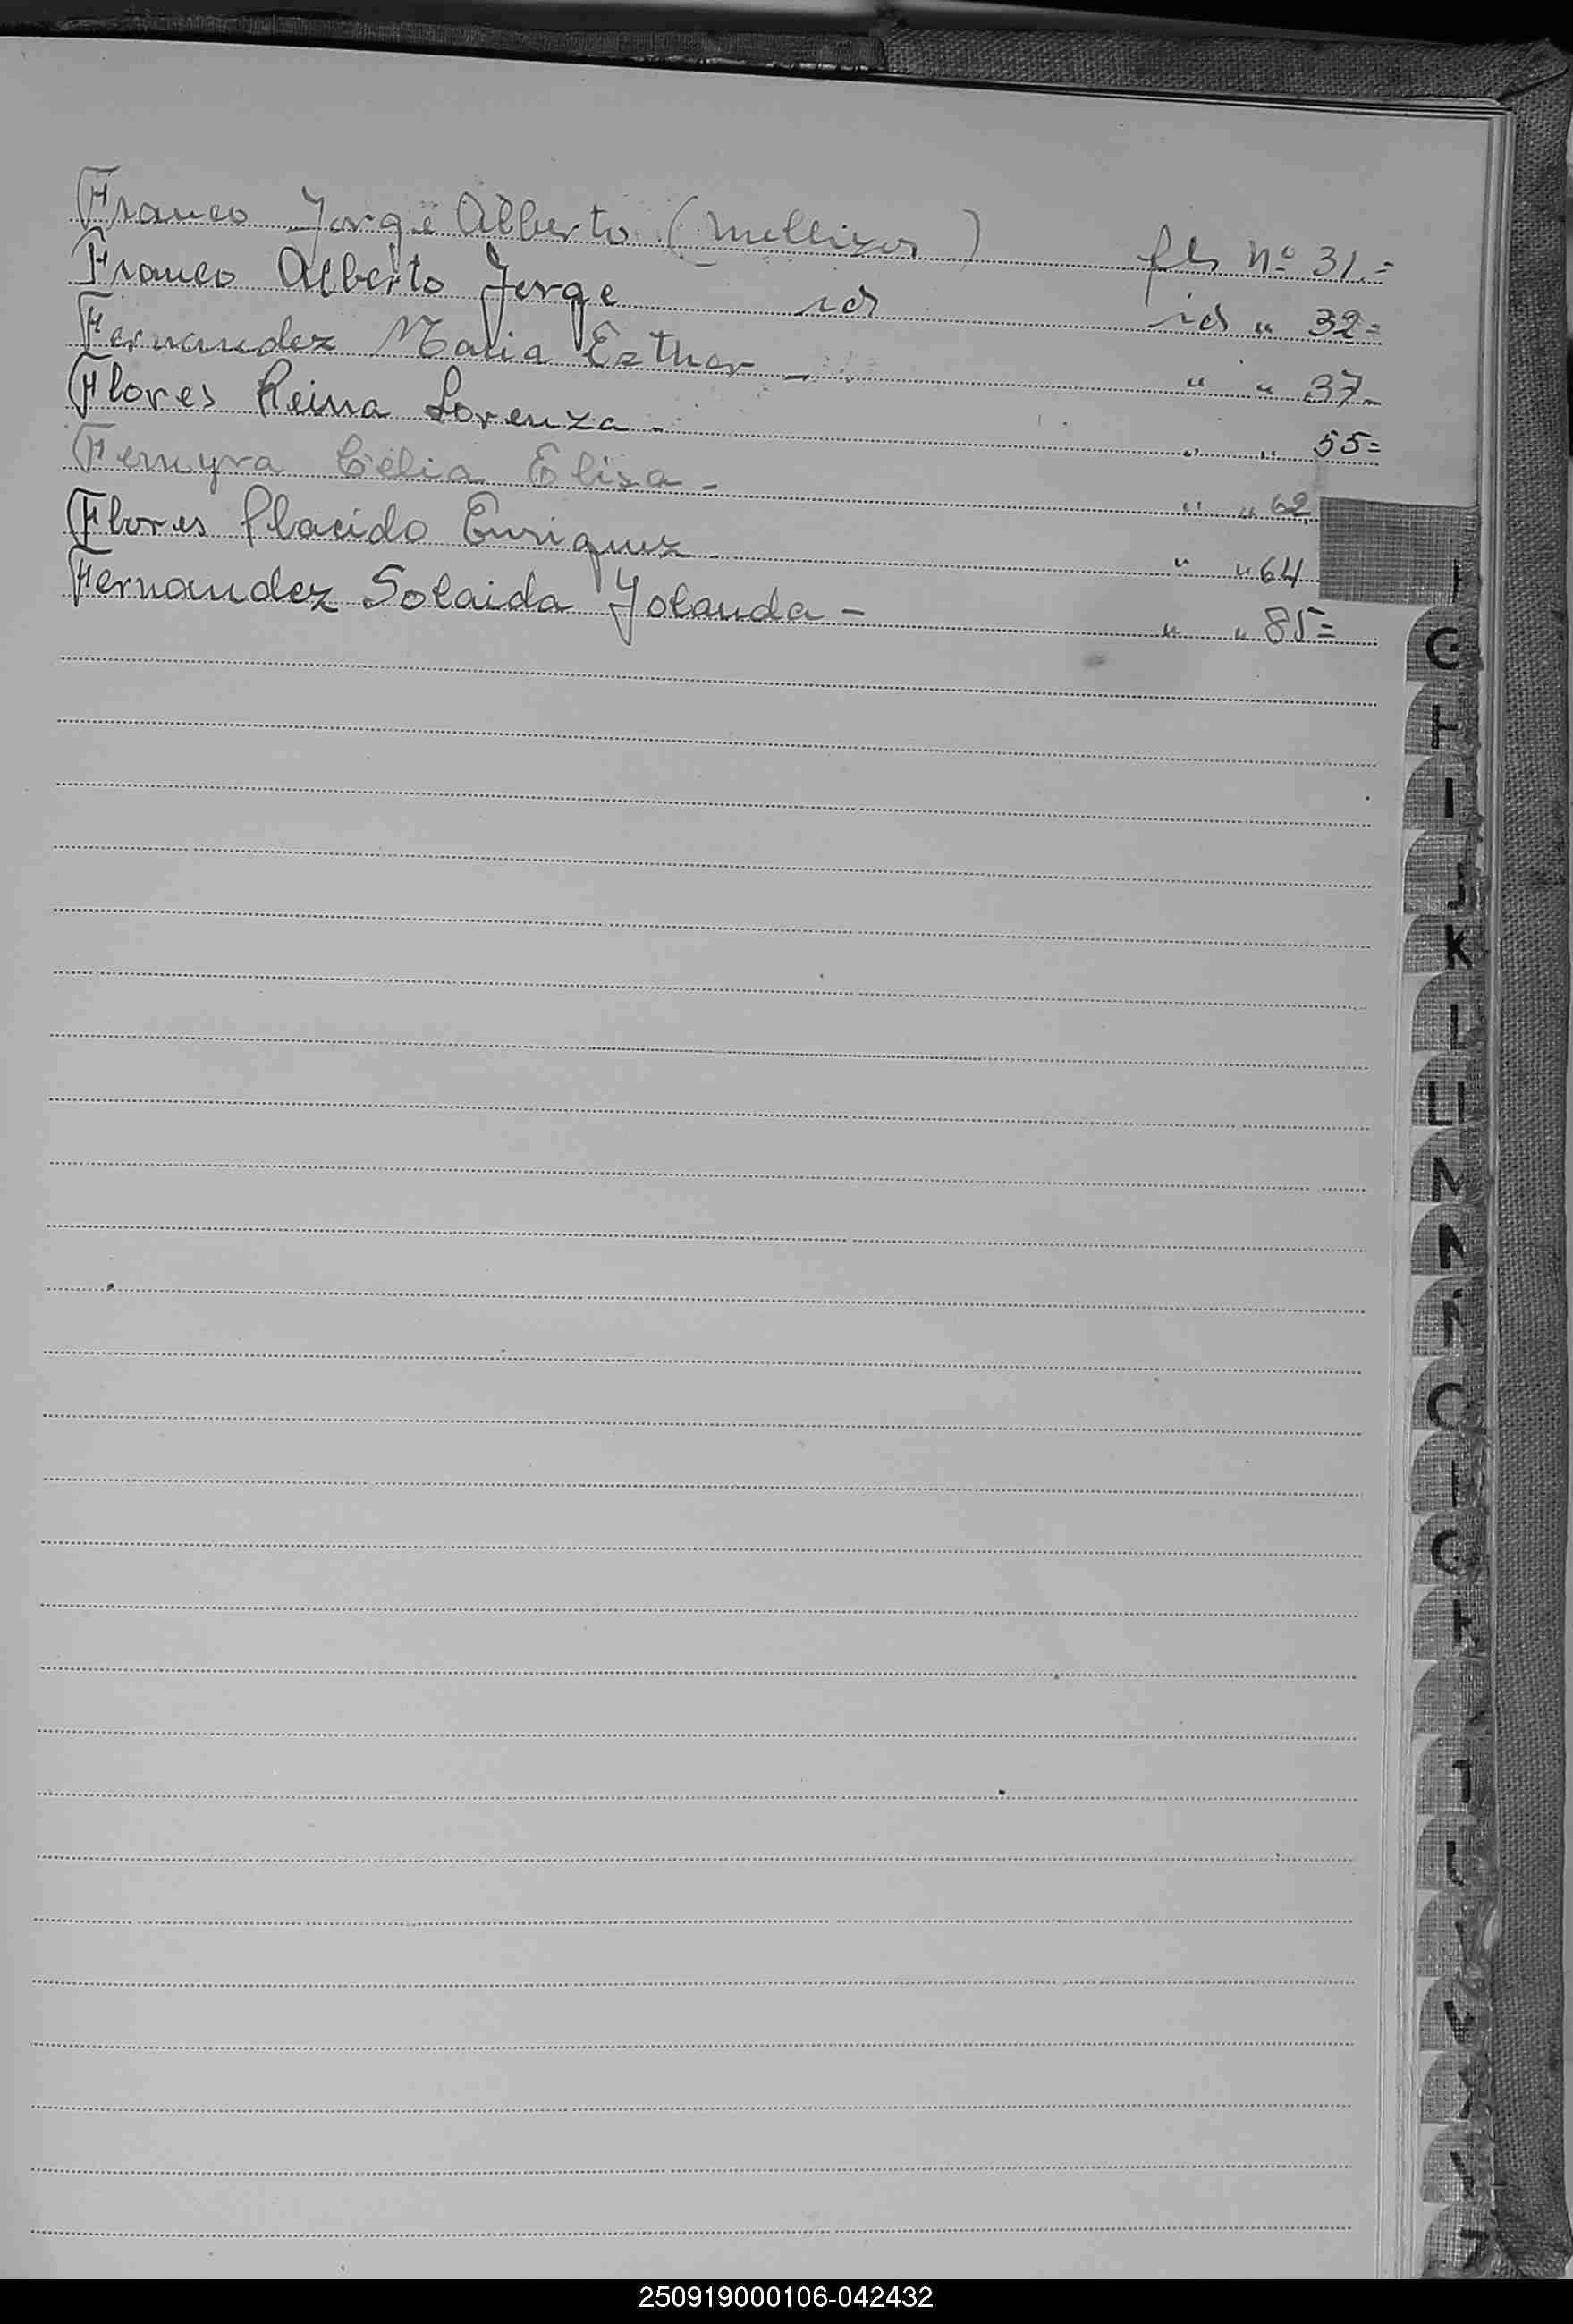 Franco Jorge Alberto (Mellizos) fls Nº 31.=
Franco Alberto Jorge id id " 32=
Fernandez Maria Esther - " " 37-
Flores Reina Lorenza. " " 55=
Ferreyra Célia Elisa - " " 62
Flores Placido Enriquez " " 64
Fernandez Solaida Yolanda - " " 85=
F
G
H
I
J
K
L
LL
M
N
Ñ
O
P
Q
R
T
U
V
W
X
Y
Z
250919000106-042432